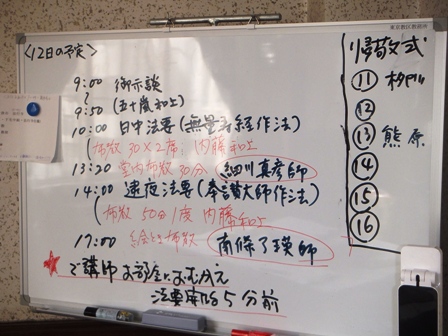 東京都区教務所
〈12日の予定〉
9:00 御示談
〜
9:50 (五十嵐和上)
10:00 日中法要(無量寿経作法)
(布教 30×2席: 内藤和上
13:20 室内布教30分 細川真彦師
14:00 逮夜法要(奉讃大師作法)
(布教 50分1席 内藤和上
17:00 絵とき布教 南條了瑛師
★で講師お部屋におむかえ
法要来る5分前
帰敬式
⑪
⑫
⑬ 熊原
⑭
⑮
⑯